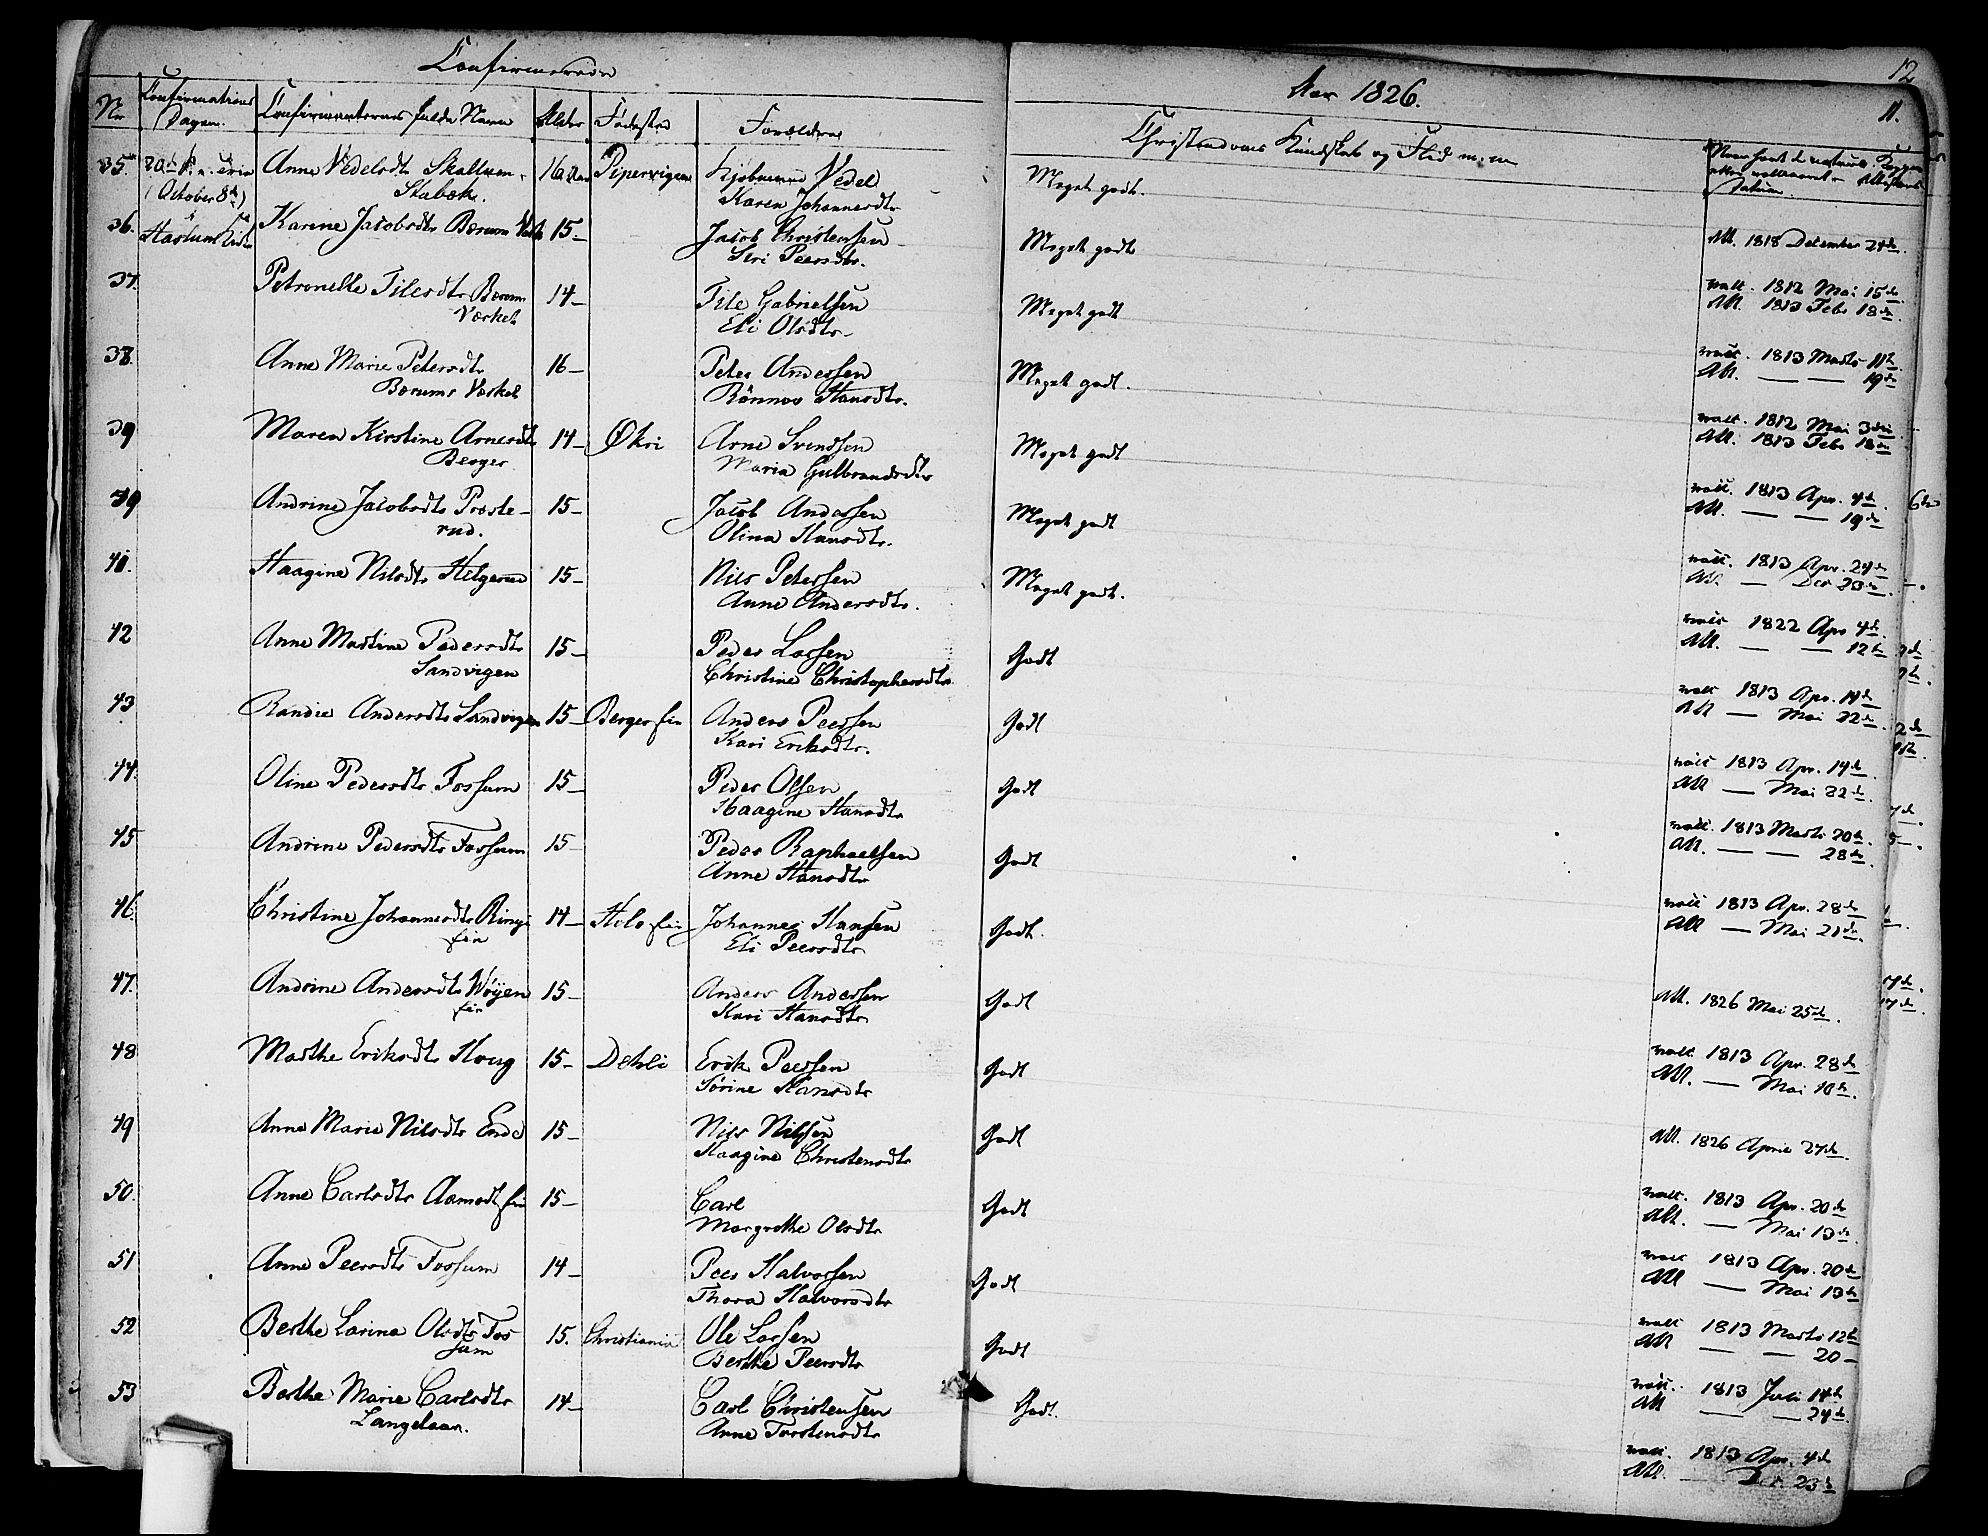 Confirmerede
Aar 1826.
12
11.
Nr
Confirmations Dagen.
Confirmanternes fulde Navn
Alder
Fødested
Forældrene
Christendoms Kundskab og Flid m.m
35. 20de S. e. Trin Anne Vedelsdtr Skallum 16 Aar Pipervigen Vedel Meget godt.
(October 8de) Stabek. Karen Johannesdtr
36. Haslum Kirke Karine Jacobsdtr Bærums Værk 15 Jacob Christensen Meget godt Att. 1818 December 24de
Siri Peersdtr.
37. Petronelle Tilesdtr Bærums 14 Tile Gabrielsen Meget godt vacc. 1812 Mai 15de
Værket Eli Olsdtr Att. 1813 Febr 18de
38. Anne Marie Petersdtr 16 Peter Anderssen Meget godt. vacc. 1813 Marts 11te
Bærums Værket Rønnov Hansdtr. Att. — — 19de
39 Maren Kirstine Arnesdtr 14 Økri Arne Svendsen Meget godt vacc. 1812 Mai 3die
Berger Maria Gulbrandsdtr Att. 1813 Febr 18de
Andrine Jacobsdtr Præste- 15 Jacob Anderssen Meget godt vacc. 1813 Apr. 4de
rud. Olina Hansdtr. Att. — — 19de
41. Haagine Nilsdtr Helgerud 15 Nils Peterssen Meget godt. vacc. 1813 Apr. 24de
Anne Andersdtr. Att. — Dec 23de
42 Anne Martine Pedersdtr 15 Peder Larsen Godt vacc 1822 Apr 4de
Sandvigen Christine Christophersdtr Att. — — 12te
43 Randie Andersdtr Sandvigen 15 Berger Eie Anders Peersen Godt vacc 1813 Apr. 14de
Kari Eriksdtr. Att — Mai 22de
44. Oline Pedersdtr Fossum 15 Peder Olsen Godt vacc 1813 Apr. 14de
Haagine Hansdtr Att — Mai 22de
45 Andrine Pedersdtr Fossum 15 Peder Raphaelsen Godt vacc. 1813 Marts 20de
Anne Hansdtr Att. — — 28de
46. Christine Johannesdtr Ringi 14 Johannes Hansen Godt. vacc 1813 Apr. 28de
Eie Eli Peersdtr Att — Mai 21de
47. Andrine Andersdtr Wøyen 15 Anders Anderssen Godt Att. 1826 Mai 25de.
Eie Kari Hansdtr
48 Marthe Eriksdtr Houg 15 Dehli Erik Peersen Godt vacc 1813 Apr. 28de
Sørine Hansdtr Att. — Mai 10de
49 Anne Marie Nilsdtr 15 Nils Nilsen Godt Att. 1826 27de.
Haagine Christensdtr
50. Anne Carlsdtr Aamodt Eie 15 Carl Godt vacc. 1813 Apr. 20de
Margrethe Olsdtr Att. — Mai 13de
51 Anne Peersdtr Fossum 14 Peer Halvorsen Godt vacc 1813 Apr. 20de
Thora Halvorsdtr Att — Mai 13de
52 Berthe Larina Olsdtr Fos 15. Christiania Ole Larsen Godt vacc 1813 Marts 12te
sum Berthe Peersdtr Att — — 20
53 Berthe Marie Carlsdtr 14 Carl Christensen Godt. vacc. 1813 Juli 14de
Langelaar. Anne Torstensdtr Att — — 24de
vacc. 1813 Apr. 4de
Att. — Dec. 23de